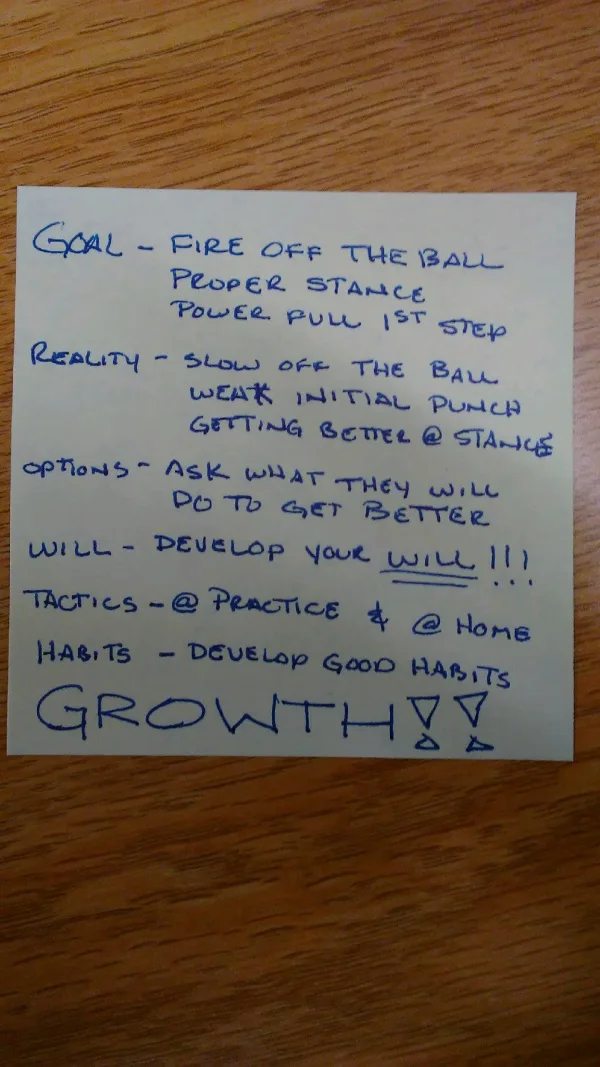 GOAL - FIRE OFF THE BALL
PROPER STANCE
POWER FULL 1ST STEP
REALITY - SLOW OFF THE BALL
WEAK INITIAL PUNCH
GETTING BETTER @ STANCE
OPTIONS - ASK WHAT THEY WILL
DO TO GET BETTER
WILL - DEVELOP YOUR WILL !!!
TACTICS - @ PRACTICE & @ HOME
HABITS - DEVELOP GOOD HABITS
GROWTH!!